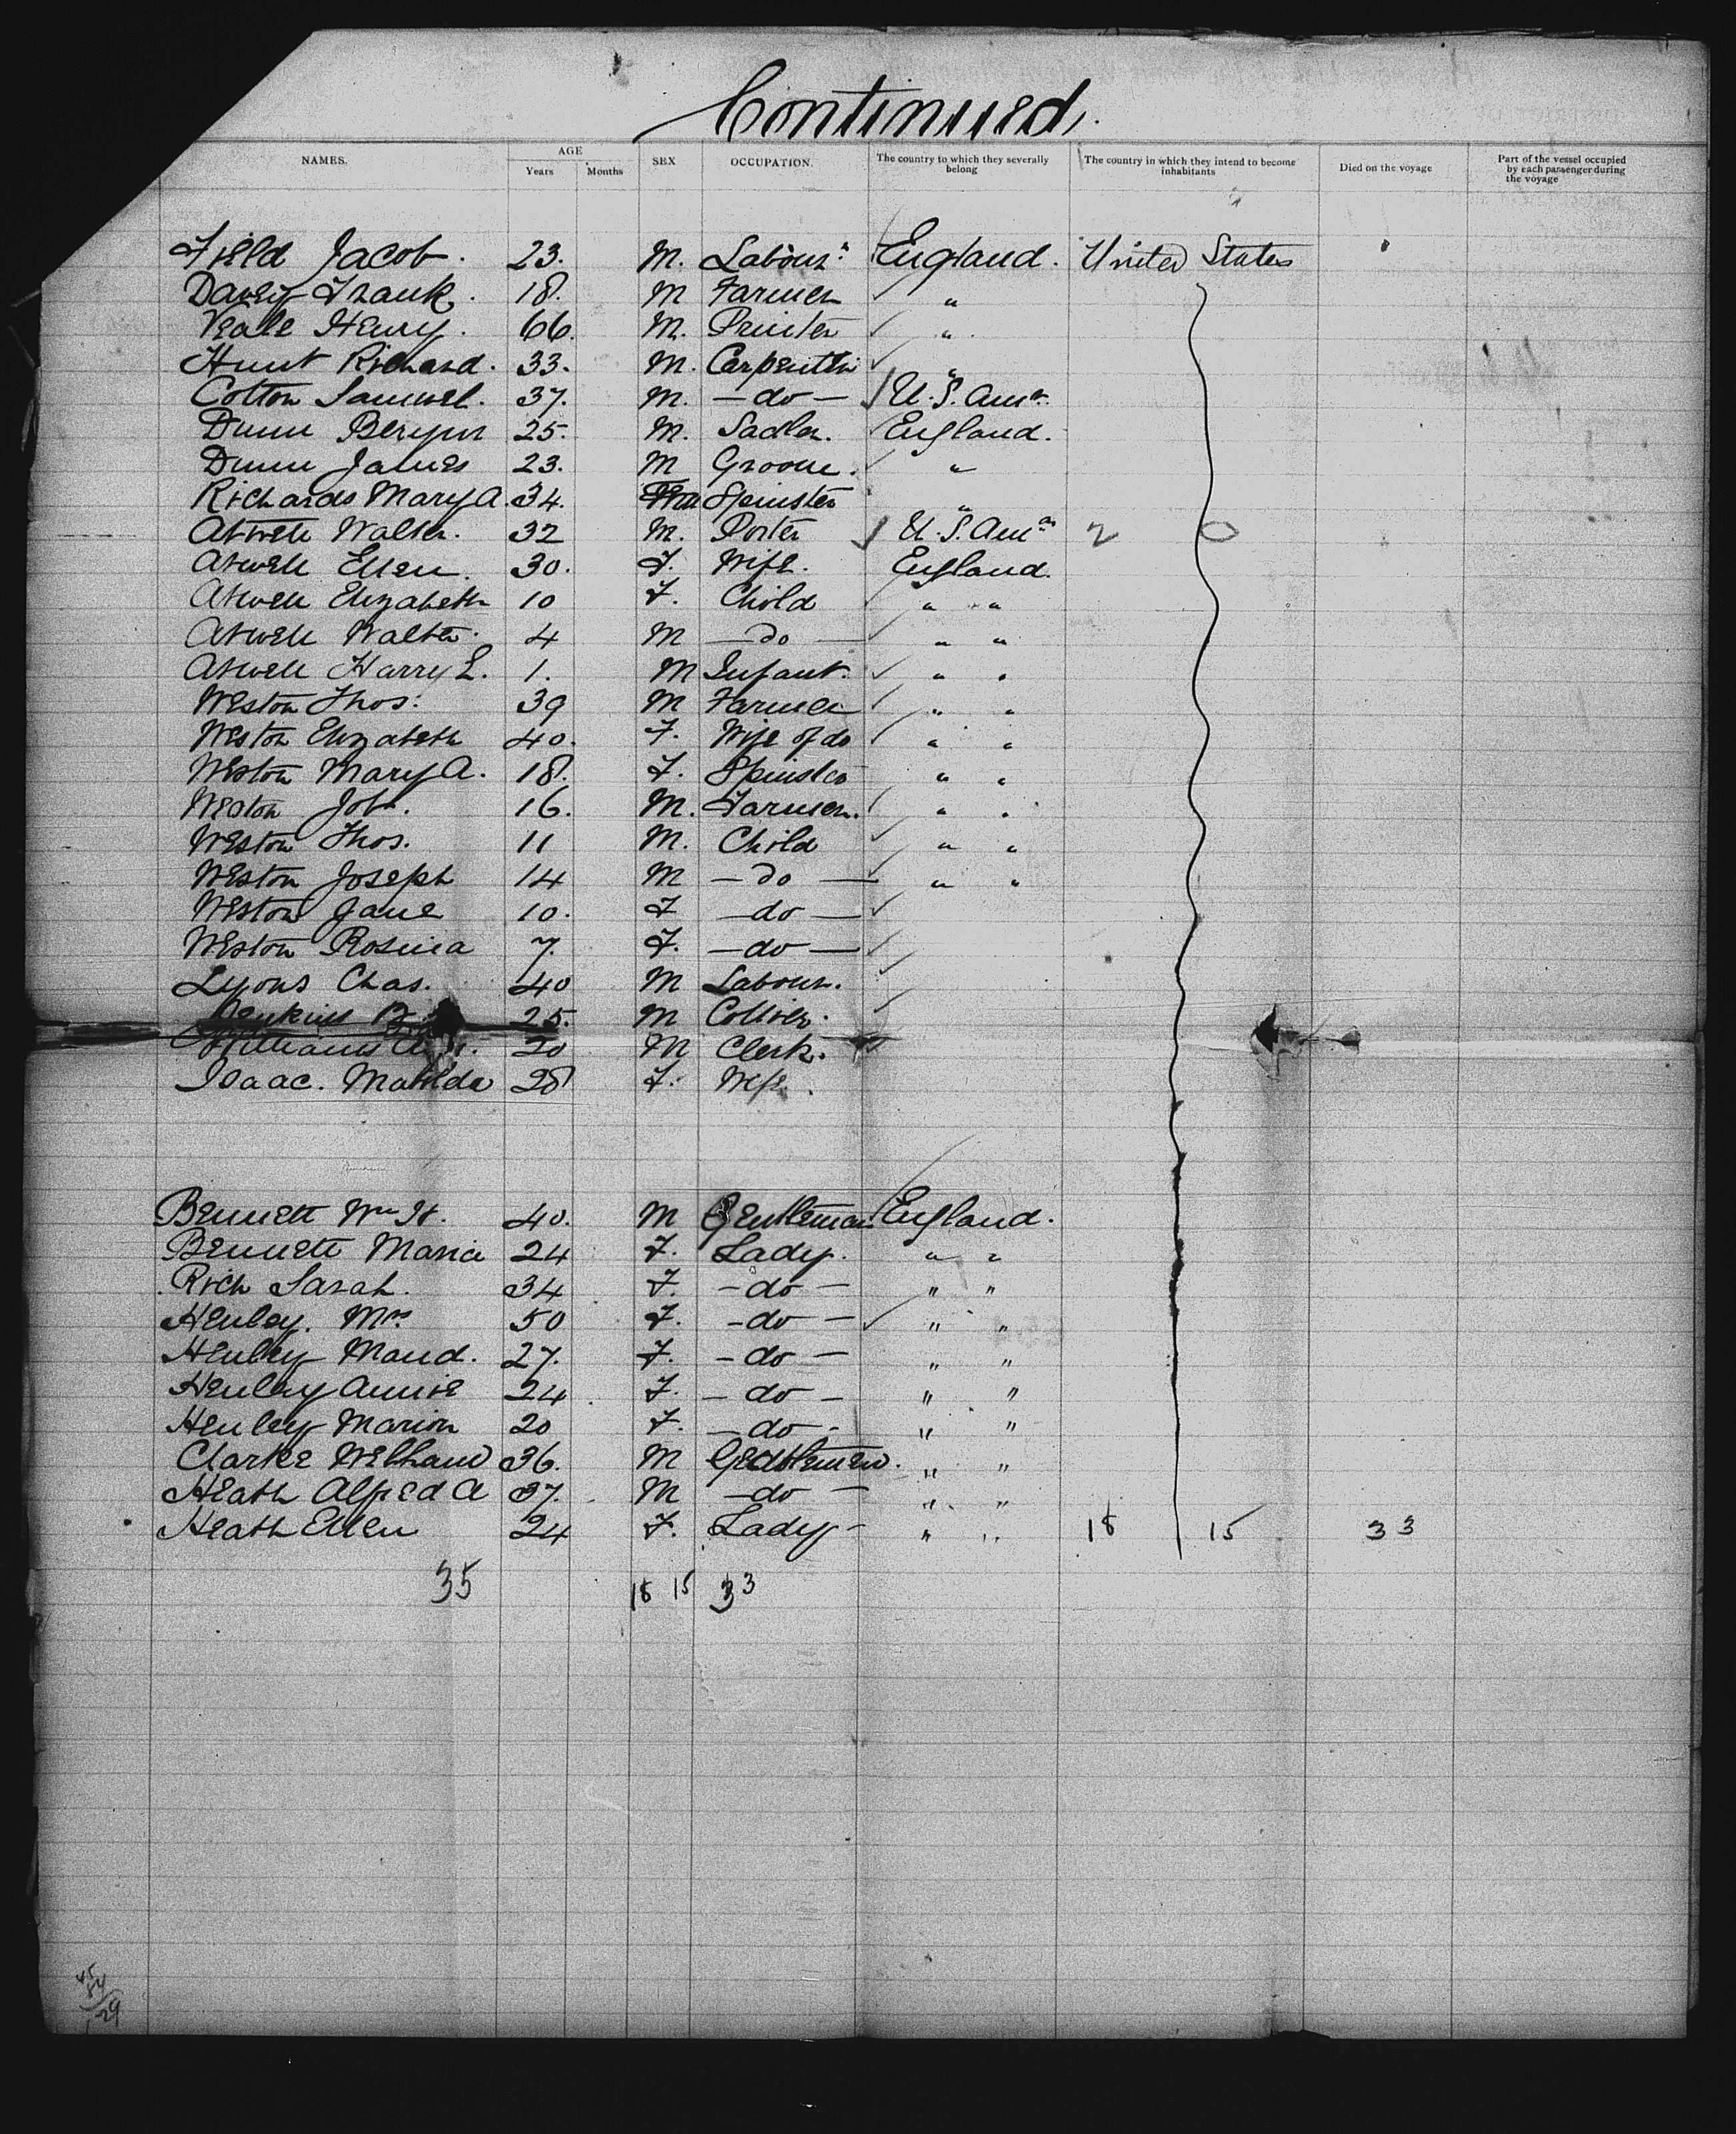 Continued.
NAMES. AGE SEX OCCUPATION. The country to which they severally belong The country in which they intend to become inhabitants Died on the voyage Part of the vessel occupied by each passenger during the voyage
Years Months
Field Jacob. 23. M. Labour" England. United States
Davey Frank. 18. M Farmer "
Veale Henry. 66. M. Printer "
Hunt Richard. 33. M. Carpenter "
Cotton Samuel. 37. M. — do — U.S. Ama.
Dunn Benjmn 25. M. Sadler. England.
Dunn James 23. M Groom. "
Richards Mary A. 34. Spinster "
Atwell Walter. 32 M. Porter U.S. Ama 2 0
Atwell Ellen. 30. F. Wife. England.
Atwell Elizabeth 10 F. Child " "
Atwell Walter. 4 M — do — " "
Atwell Harry E. 1. M Infant. " "
Weston Thos. 39 M Farmer " "
Weston Elizabeth 40. F. Wife of do " "
Weston Mary A. 18. F. Spinster " "
Weston Job. 16. M. Farmer. " "
Weston Thos. 11 M. Child " "
Weston Joseph 14 M — do — " "
Weston Jane 10. F — do —
Weston Rosina 7. F. — do —
Lyons Chas. 40 M Labour.
Jenkins 25. M Collier.
Williams 20 M Clerk.
Isaac. Matilda 28 F. Wife.
Bennett Wm H. 40. M Gentleman England.
Bennett Maria 24 F. Lady. " "
Rich Sarah. 34 F. - do — " "
Henley. Mrs 50 F. - do — " "
Henley Maud. 27. F. - do — " "
Henley Annie 24 F. - do - " "
Henley Marion 20 F. - do - " "
Clarke William 36. M Gentlemen. " "
Heath Alfred A 37. M - do — " "
Heath Ellen 24 F. Lady - " " 18 15 33
35 18 15 33